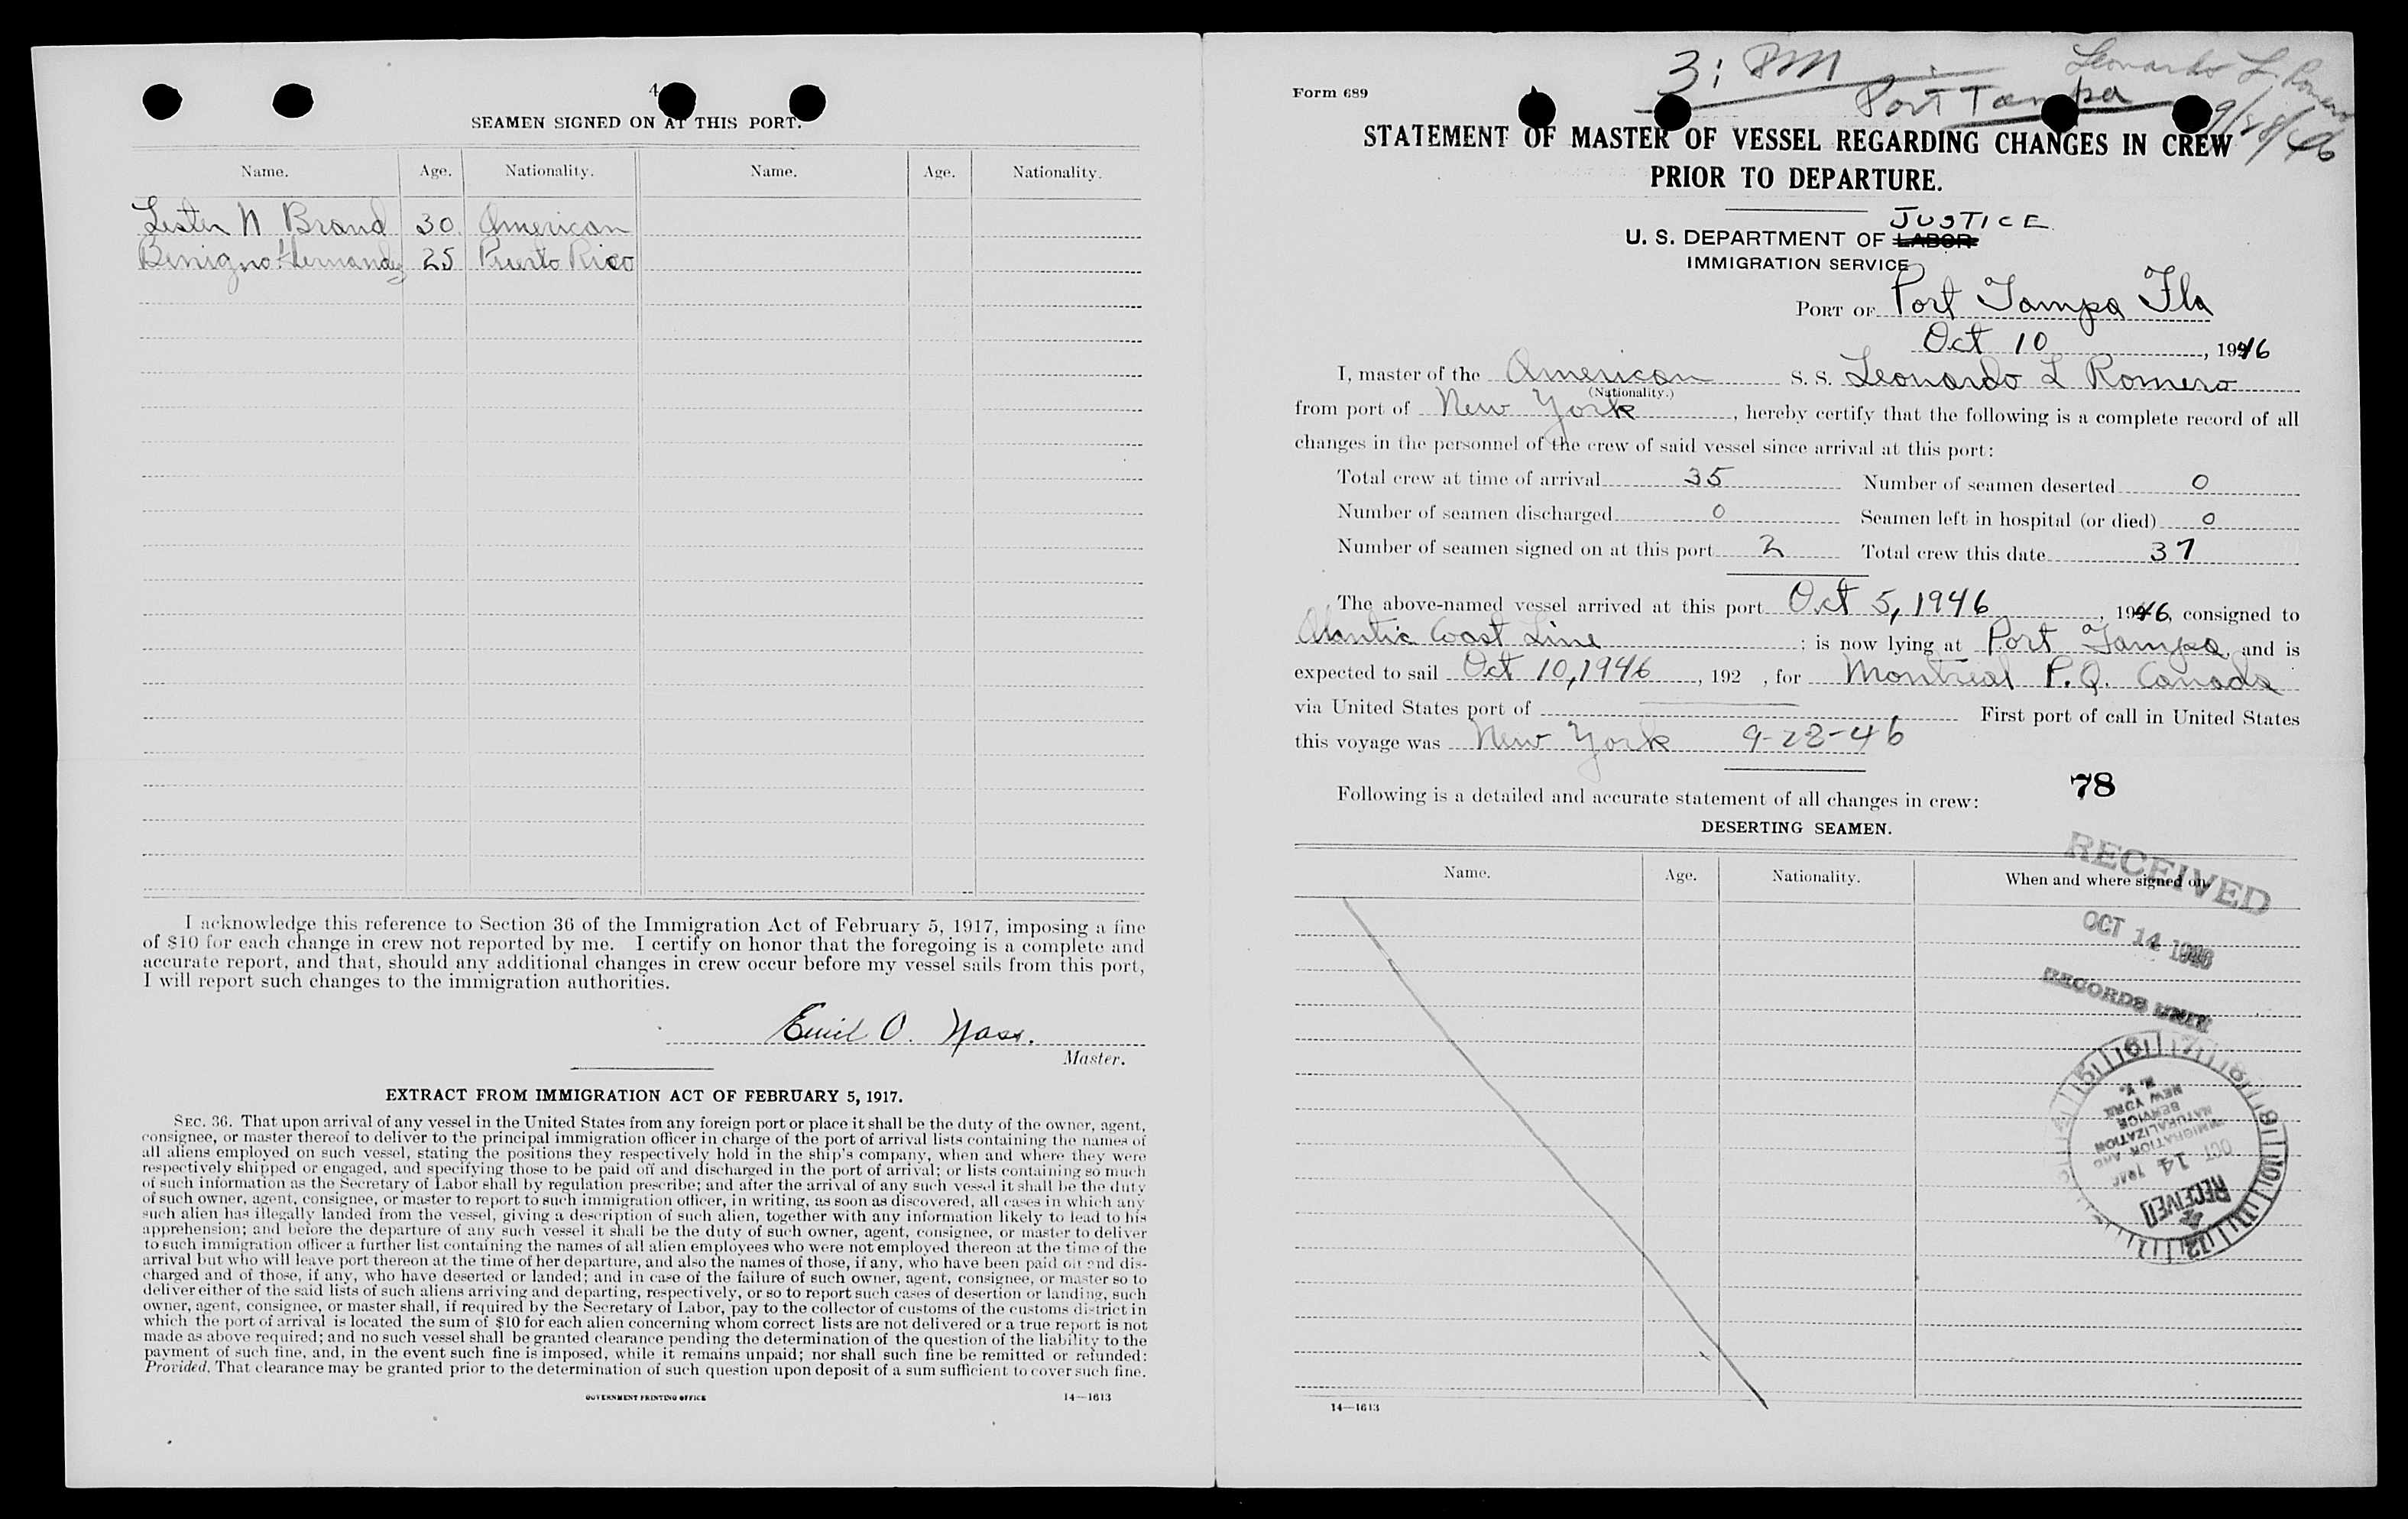 4
SEAMEN SIGNED ON AT THIS PORT.
Name. Age. Nationality. Name. Age. Nationality.
Lester N Brand 30 American
Benigno Hernandez 25 Puerto Rico
I acknowledge this reference to Section 36 of the Immigration Act of February 5, 1917, imposing a fine
of $10 for each change in crew not reported by me. I certify on honor that the foregoing is a complete and
accurate report, and that, should any additional changes in crew occur before my vessel sails from this port,
I will report such changes to the immigration authorities.
Emil O.
Master.
EXTRACT FROM IMMIGRATION ACT OF FEBRUARY 5, 1917.
SEC. 36. That upon arrival of any vessel in the United States from any foreign port or place it shall be the duty of the owner, agent,
consignee, or master thereof to deliver to the principal immigration officer in charge of the port of arrival lists containing the names of
all aliens employed on such vessel, stating the positions they respectively hold in the ship's company, when and where they were
respectively shipped or engaged, and specifying those to be paid off and discharged in the port of arrival; or lists containing so much
of such information as the Secretary of Labor shall by regulation prescribe; and after the arrival of any such vessel it shall be the duty
of such owner, agent, consignee, or master to report to such immigration officer, in writing, as soon as discovered, all cases in which any
such alien has illegally landed from the vessel, giving a description of such alien, together with any information likely to lead to his
apprehension; and before the departure of any such vessel it shall be the duty of such owner, agent, consignee, or master to deliver
to such immigration officer a further list containing the names of all alien employees who were not employed thereon at the time of the
arrival but who will leave port thereon at the time of her departure, and also the names of those, if any, who have been paid off and dis-
charged and of those, if any, who have deserted or landed; and in case of the failure of such owner, agent, consignee, or master so to
deliver either of the said lists of such aliens arriving and departing, respectively, or so to report such cases of desertion or landing, such
owner, agent, consignee, or master shall, if required by the Secretary of Labor, pay to the collector of customs of the customs district in
which the port of arrival is located the sum of $10 for each alien concerning whom correct lists are not delivered or a true report is not
made as above required; and no such vessel shall be granted clearance pending the determination of the question of the liability to the
payment of such fine, and, in the event such fine is imposed, while it remains unpaid; nor shall such fine be remitted or refunded:
Provided, That clearance may be granted prior to the determination of such question upon deposit of a sum sufficient to cover such fine.
GOVERNMENT PRINTING OFFICE 14—1613
3: PM Leonardo L. Romero
Form 689 Port Tampa 9/28/46
STATEMENT OF MASTER OF VESSEL REGARDING CHANGES IN CREW
PRIOR TO DEPARTURE.
JUSTICE
U. S. DEPARTMENT OF LABOR
IMMIGRATION SERVICE
PORT OF Port Tampa Fla
Oct 10, 1946
I, master of the American S. S. Leonardo L Romero
(Nationality.)
from port of New York, hereby certify that the following is a complete record of all
changes in the personnel of the crew of said vessel since arrival at this port:
Total crew at time of arrival 35 Number of seamen deserted 0
Number of seamen discharged 0 Seamen left in hospital (or died) 0
Number of seamen signed on at this port 2 Total crew this date 37
The above-named vessel arrived at this port Oct 5, 1946, 1946, consigned to
Atlantic Coast Line; is now lying at Port Tampa, and is
expected to sail Oct 10, 1946, 192 , for Montreal P.Q. Canada
via United States port of First port of call in United States
this voyage was New York 9-28-46
78
Following is a detailed and accurate statement of all changes in crew:
DESERTING SEAMEN.
Name. Age. Nationality. When and where signed on.
RECEIVED
OCT 14 1946
RECORDS UNIT
5 6 7 8 9 10 11 12 1
RECEIVED
OCT 14 1946
IMMIGRATION AND
NATURALIZATION
SERVICE
NEW YORK
N. Y.
14—1613